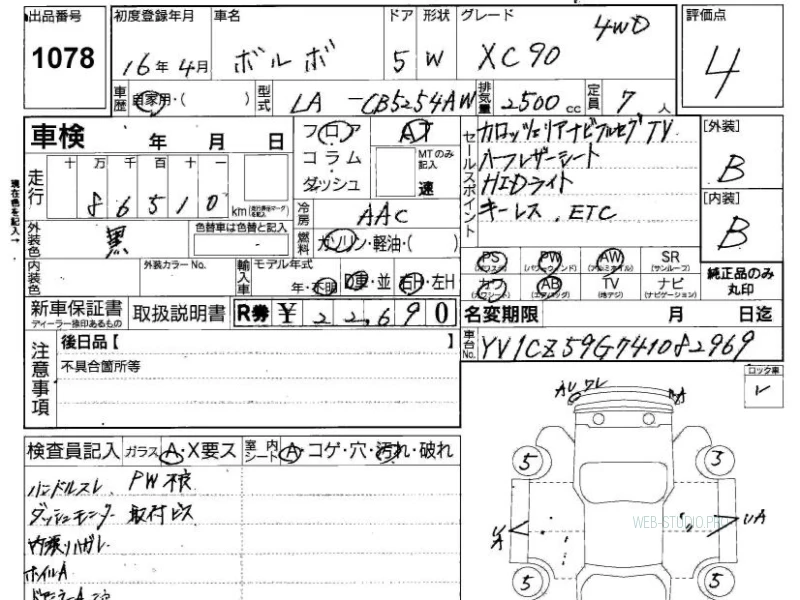 出品番号 初度登録年月 車名 ドア 形状 グレード 評価点
1078 16年4月 ボルボ 5 W XC90 4WD 4
車歴 自家用・( ) 型式 LA-CB5254AW 排気量 2500cc 定員 7人
車検 年 月 日 フロア・コラム・ダッシュ AT MTのみ記入 速
現在色を記入→
走行 十 万 千 百 十 一
86510 km
冷房 AAC
外装色 黒 色替車は色替と記入
燃料 ガソリン・軽油・( )
内装色 外装カラーNo. 輸入車 モデル年式 年・不明 D車・並 右H・左H
新車保証書 ディーラー捺印あるもの 取扱説明書 R券 ¥22,690
セールスポイント
カロッツェリアナビフルセグTV
ハーフレザーシート
HIDライト
キーレス、ETC
[外装]
B
[内装]
B
PS (パワステ) PW (パワーウィンド) AW (アルミホイル) SR (サンルーフ)
カワ (カワシート) AB (エアバッグ) TV (地デジ) ナビ (ナビゲーション)
純正品のみ丸印
名変期限 月 日迄
車台No. YV1CZ59G741082969
注意事項
後日品【 】
不具合箇所等
ロック車
レ
検査員記入 ガラス A・X要ス 室内シート A・コゲ・穴・汚れ・破れ
ハンドルスレ PW不良
ダッシュモニター取付ビス
内張りハガレ
ホイルA
AU ワレ A
5 3
UA UA
5 5
WEB-STUDIO.PRO